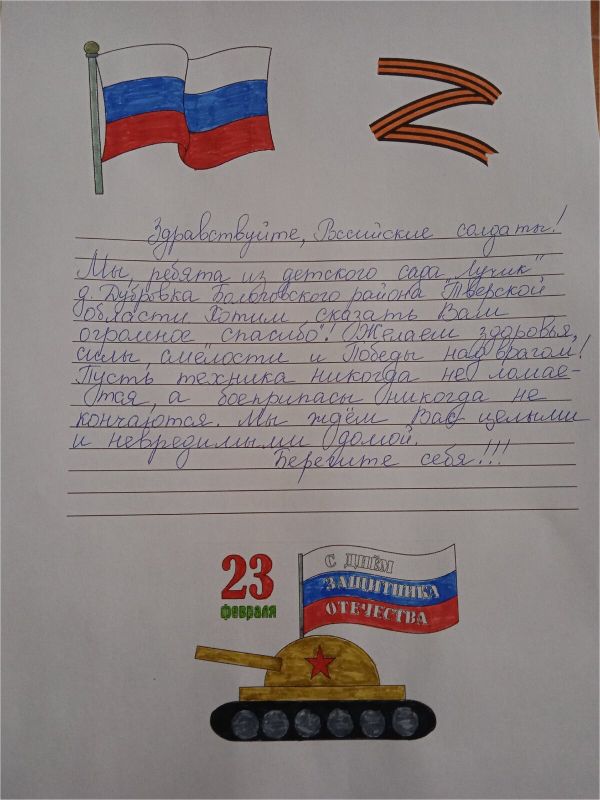 Здравствуйте, Российские солдаты!
Мы, ребята из детского сада „Лучик"
д. Дубровка Бологовского района Тверской
области хотим сказать Вам
огромное спасибо! Желаем здоровья,
силы, смелости и Победы над врагом!
Пусть техника никогда не ломае-
тся, а боеприпасы никогда не
кончаются. Мы ждём Вас целыми
и невредимыми домой.
Берегите себя!!!
23
февраля
С ДНЁМ
ЗАЩИТНИКА
ОТЕЧЕСТВА